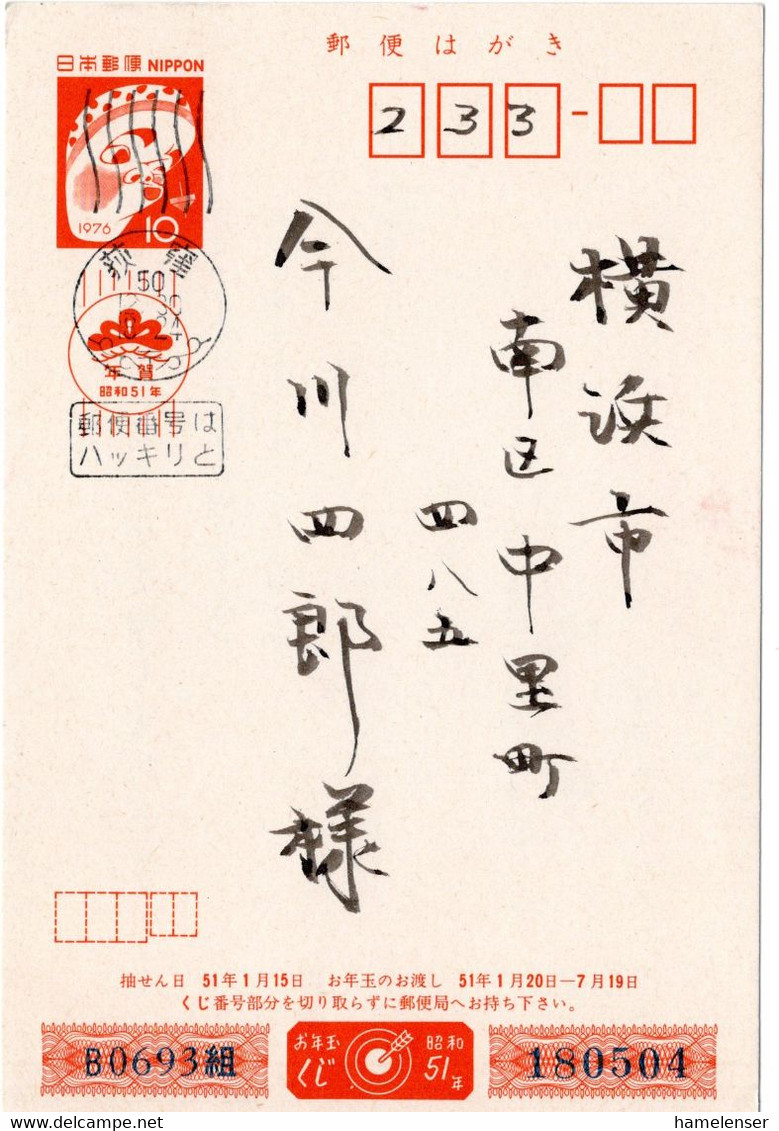 郵便はがき
日本郵便 NIPPON
1976 10
233-
荻窪
50
年賀
昭和51年
郵便番号は
ハッキリと
横浜市
南区中里町
四八五
今川四郎様
抽せん日 51年1月15日 お年玉のお渡し 51年1月20日—7月19日
くじ番号部分を切り取らずに郵便局へお持ち下さい。
B0693組
お年玉くじ
昭和51年
180504
hamelenser